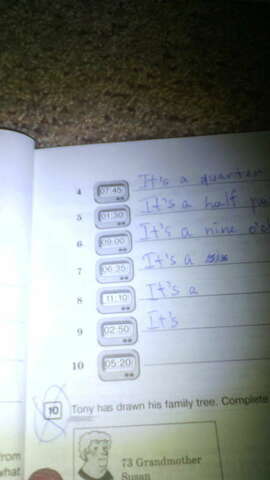 4 07:45 It's a quarter
5 01:30 It's a half
6 09:00 It's a nine
7 06:35 It's a
8 11:10 It's a
9 02:50 It's
10 05:20
10 Tony has drawn his family tree. Complete
73 Grandmother
Susan
what